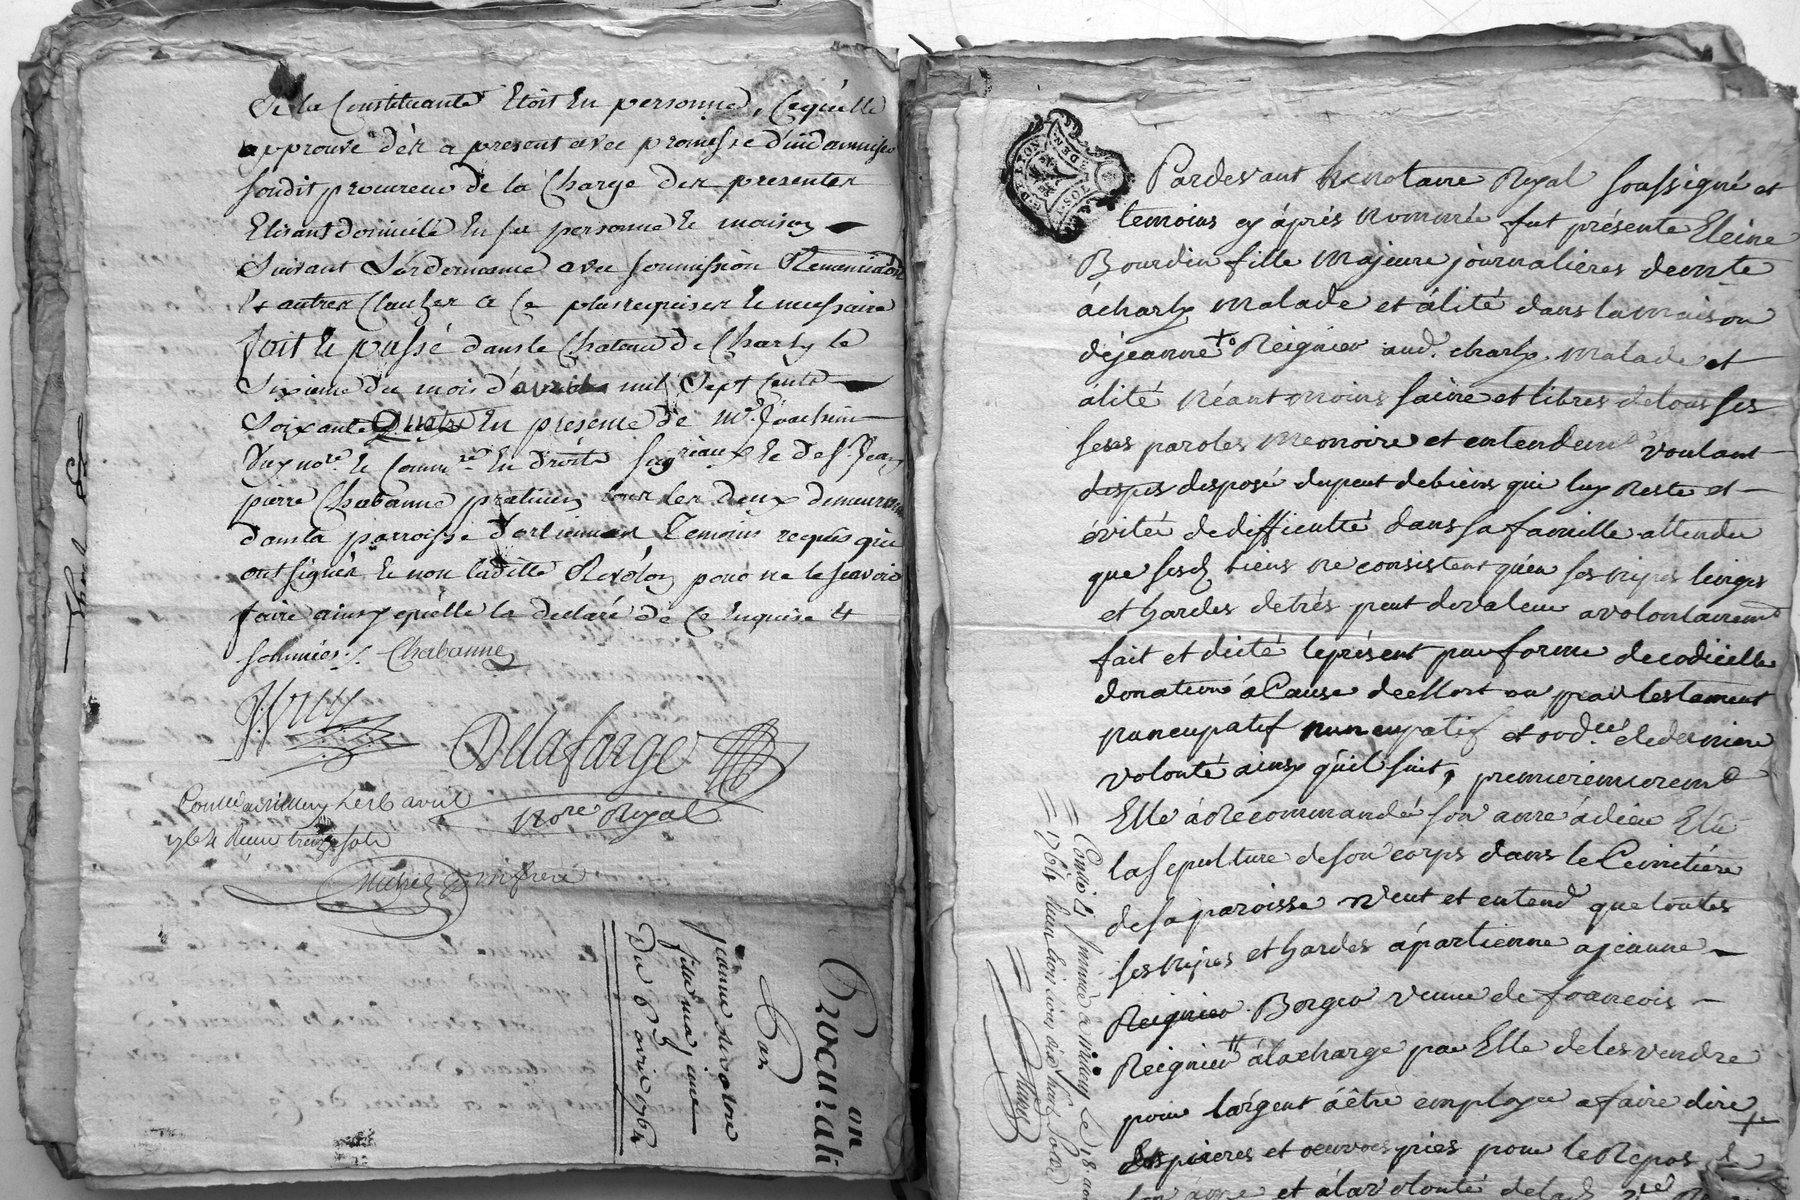 De la Constituante Etoit En personne, Ce quelle
approuve dèz a present avec promesse d'indamniser
sondit procureur de la Charge der presenter
Elisant domicile En sa personne Et maison
Suivant L'ordonnance avec soumission Renonciaôn
Et autres Clauzes a Ce plus requises Et necessaire
fait Et passé dans le Chateau de Charly le
Sixieme du mois d'avril mil Sept Cents
Soixante Quatre En présence de Mr. Joachim
Vuy no.re Et Comm.re En droits Et de Sr. Jean
pierre Chabanne praticien tous les deux demeurant
dans la parroisse d'orlienas Témoins requis qui
ont signés Et non laditte Révolon pour ne le sçavoir
faire ainsy qu'elle la declaré de Ce Enquise Et
sommée ./. Chabanne
J. Vuy
Delafarge
No.re Royal
avril
1764 Reçu treize sols
un
Procurat
Par
Jeanne
fille majeure
Du 6 avril 1764
Pardevant le notaire Royal soussigné et
temoins cy áprés Nommés fut présente Eleine
Bourdin fille Majeure journalieres demte
ácharly Malade et álité dans la maison
déjeanne Reignier aud. charly. Malade et
álité Néant moins saine et libres de tous ses
seses paroles Memoire et entendemt voulant
despos disposé du peut de biens qui luy Reste et
évitée de difficultté dans sa famille attendu
que sesd biens ne consistent qu'en ses nipes linges
et hardes de trés peut de valeur a volontairemt
fait et dicté le présent par forme de codicille
donation á Cause de Mort ou par testament
nuncupatif nuncupatif et ord.ce de derniere
volonté ainsy qu'il suit, premierementremt
Elle á Recommandé son ame á dieu Elu
la sepulture de son corps dans le Cemitiére
de sa paroisse Veut et entend que toutes
ses nipes et hardes ápartienne a jeanne
Reignier Borgeo veuve de francois
Reignier á la charge par Elle de les vendre
pour l'argent áêtre employer a faire dire
des prieres et oeuvres pies pour le Repos d
son ame et á la volonté de lad
1764